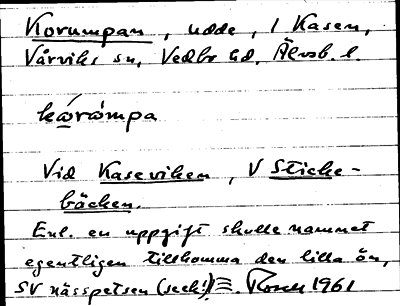 Korumpan, udde, i Kasen,
Vårviks sn, Vedbo hd, Älvsb. l.
kωrómpa
Vid Kaseviken, V Sticke-
bäcken.
Enl. en uppgift skulle namnet
egentligen tillkomma den lilla ön,
SV nässpetsen (seck!) 1961